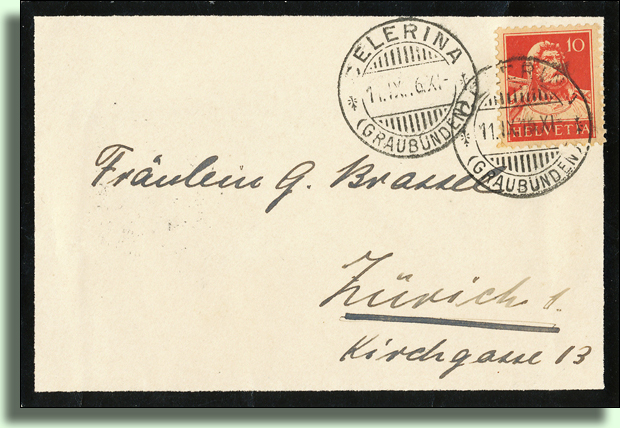 CELERINA
11.IX.16.XI-
(GRAUBÜNDEN)
10
HELVETIA
CELERINA
11.IX.16.XI-
(GRAUBÜNDEN)
Fräulein G. Brassel
Zürich 1.
Kirchgasse 13